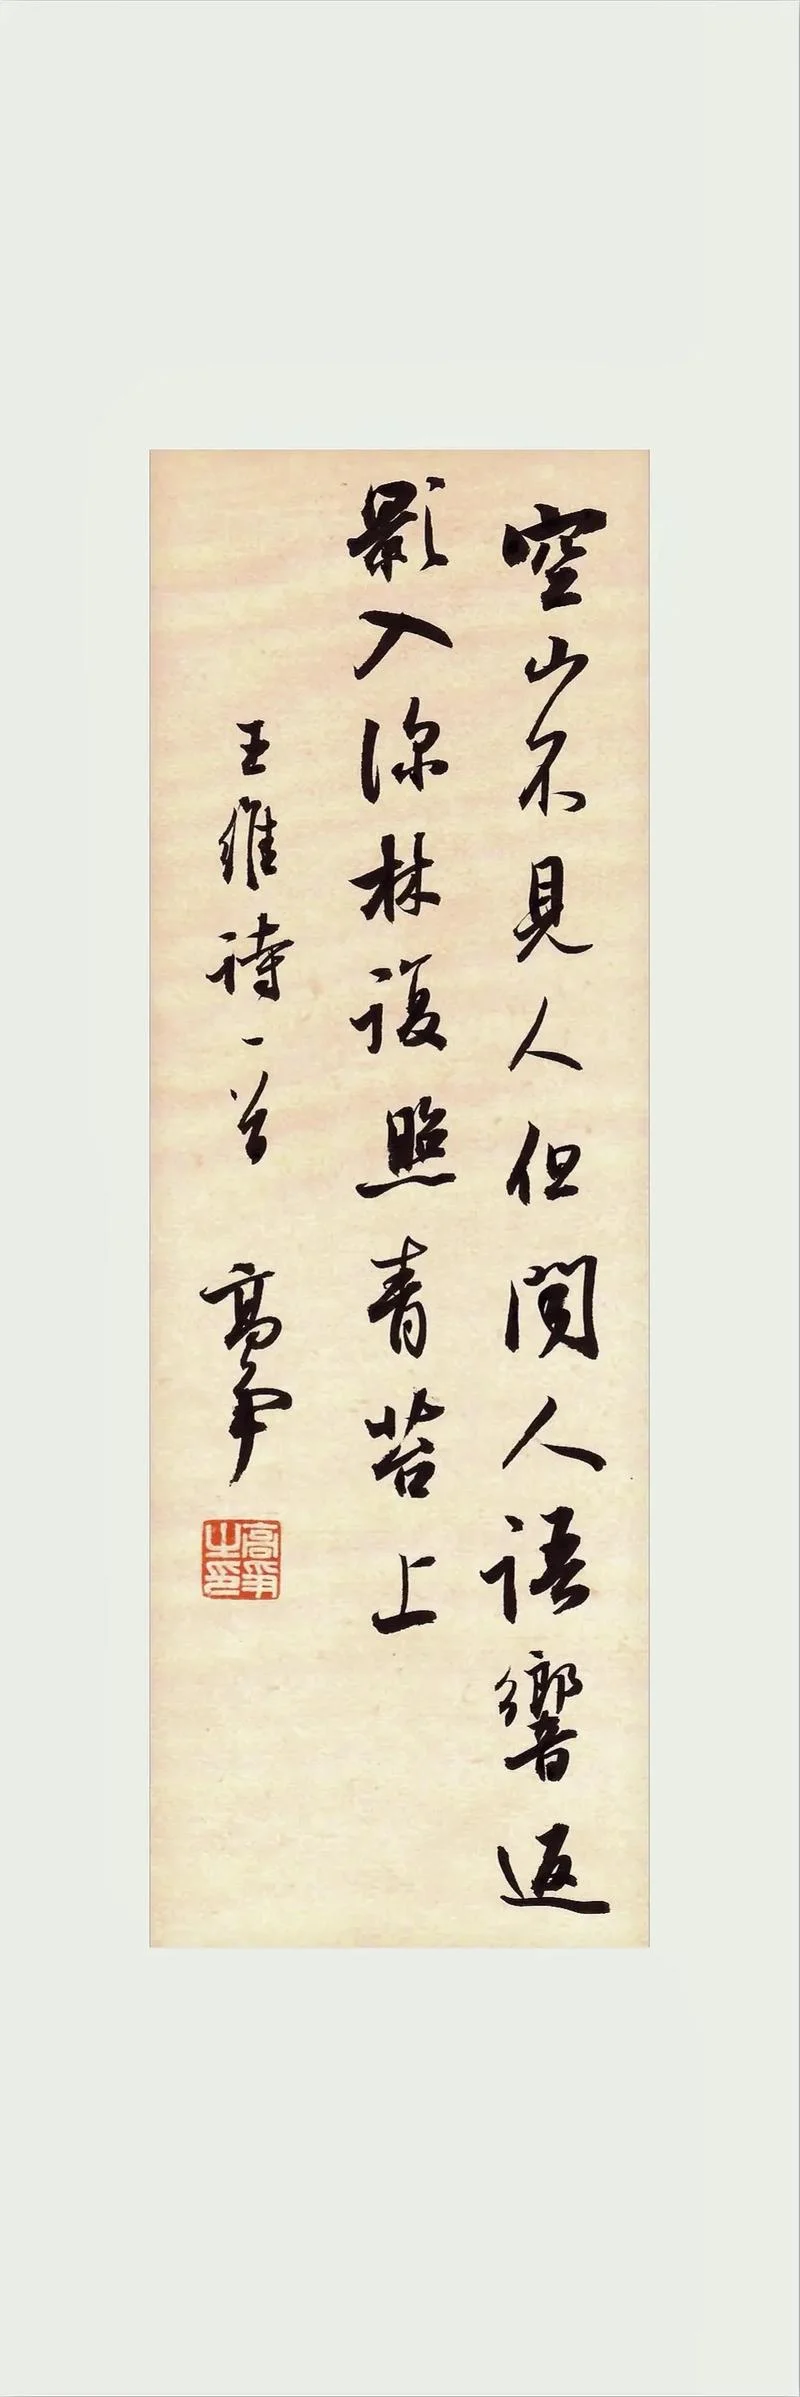 空山不見人但聞人語響返
影入深林復照青苔上
王維詩一首
高爭
高爭之印